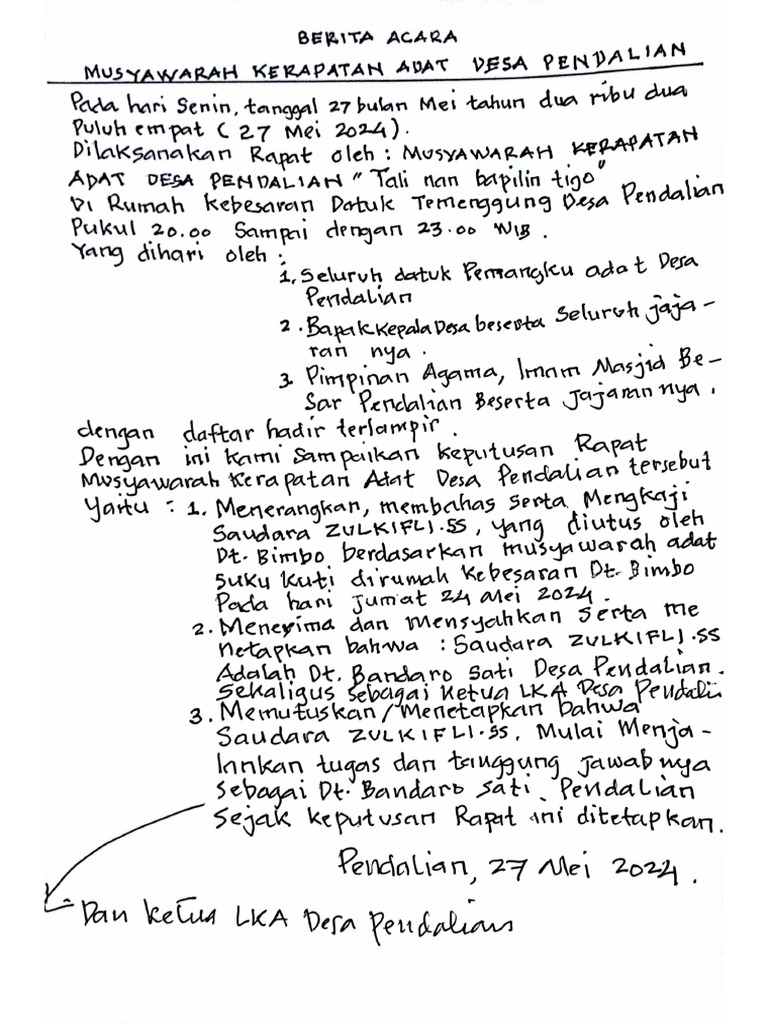 BERITA ACARA
MUSYAWARAH KERAPATAN ADAT DESA PENDALIAN
Pada hari Senin, tanggal 27 bulan Mei tahun dua ribu dua
Puluh empat (27 Mei 2024).
Dilaksanakan Rapat oleh : MUSYAWARAH KERAPATAN
ADAT DESA PENDALIAN "Tali nan bapilin tigo"
Di Rumah Kebesaran Datuk Temenggung Desa Pendalian
Pukul 20.00 Sampai dengan 23.00 WIB.
Yang dihari oleh :
1. Seluruh datuk Pemangku adat Desa
Pendalian
2. Bapak Kepala Desa beserta Seluruh jaja-
ran nya.
3. Pimpinan Agama, Imam Masjid Be-
Sar Pendalian Beserta Jajaran nya.
dengan daftar hadir terlampir.
Dengan ini kami Sampaikan keputusan Rapat
Musyawarah Kerapatan Adat Desa Pendalian tersebut
Yaitu : 1. Menerangkan, membahas serta Mengkaji
Saudara ZULKIFLI.SS, yang diutus oleh
Dt. Bimbo berdasarkan musyawarah adat
Suku Kuti dirumah Kebesaran Dt. Bimbo
Pada hari Jumat 24 Mei 2024.
2. Menerima dan Mensyahkan Serta me
netapkan bahwa : Saudara ZULKIFLI.SS
Adalah Dt. Bandaro Sati Desa Pendalian.
Sekaligus sebagai Ketua LKA Desa Pendali
3. Memutuskan/Menetapkan bahwa
Saudara ZULKIFLI.SS, Mulai Menja-
lankan tugas dan tanggung jawabnya
Sebagai Dt. Bandaro Sati Pendalian
Sejak keputusan Rapat ini ditetapkan.
Pendalian, 27 Mei 2024.
Dan Ketua LKA Desa Pendalian